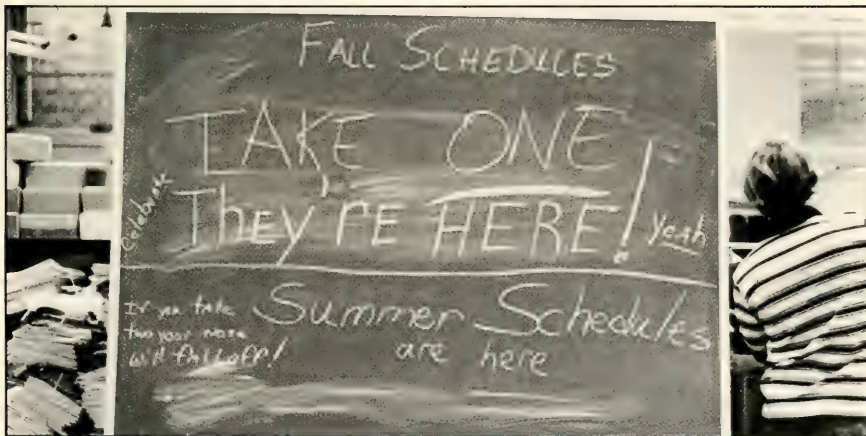 FALL SCHEDULES
TAKE ONE
They're HERE!
Celebrate
Yeah
If you take
two your nose
will fall off!
Summer Schedules
are here